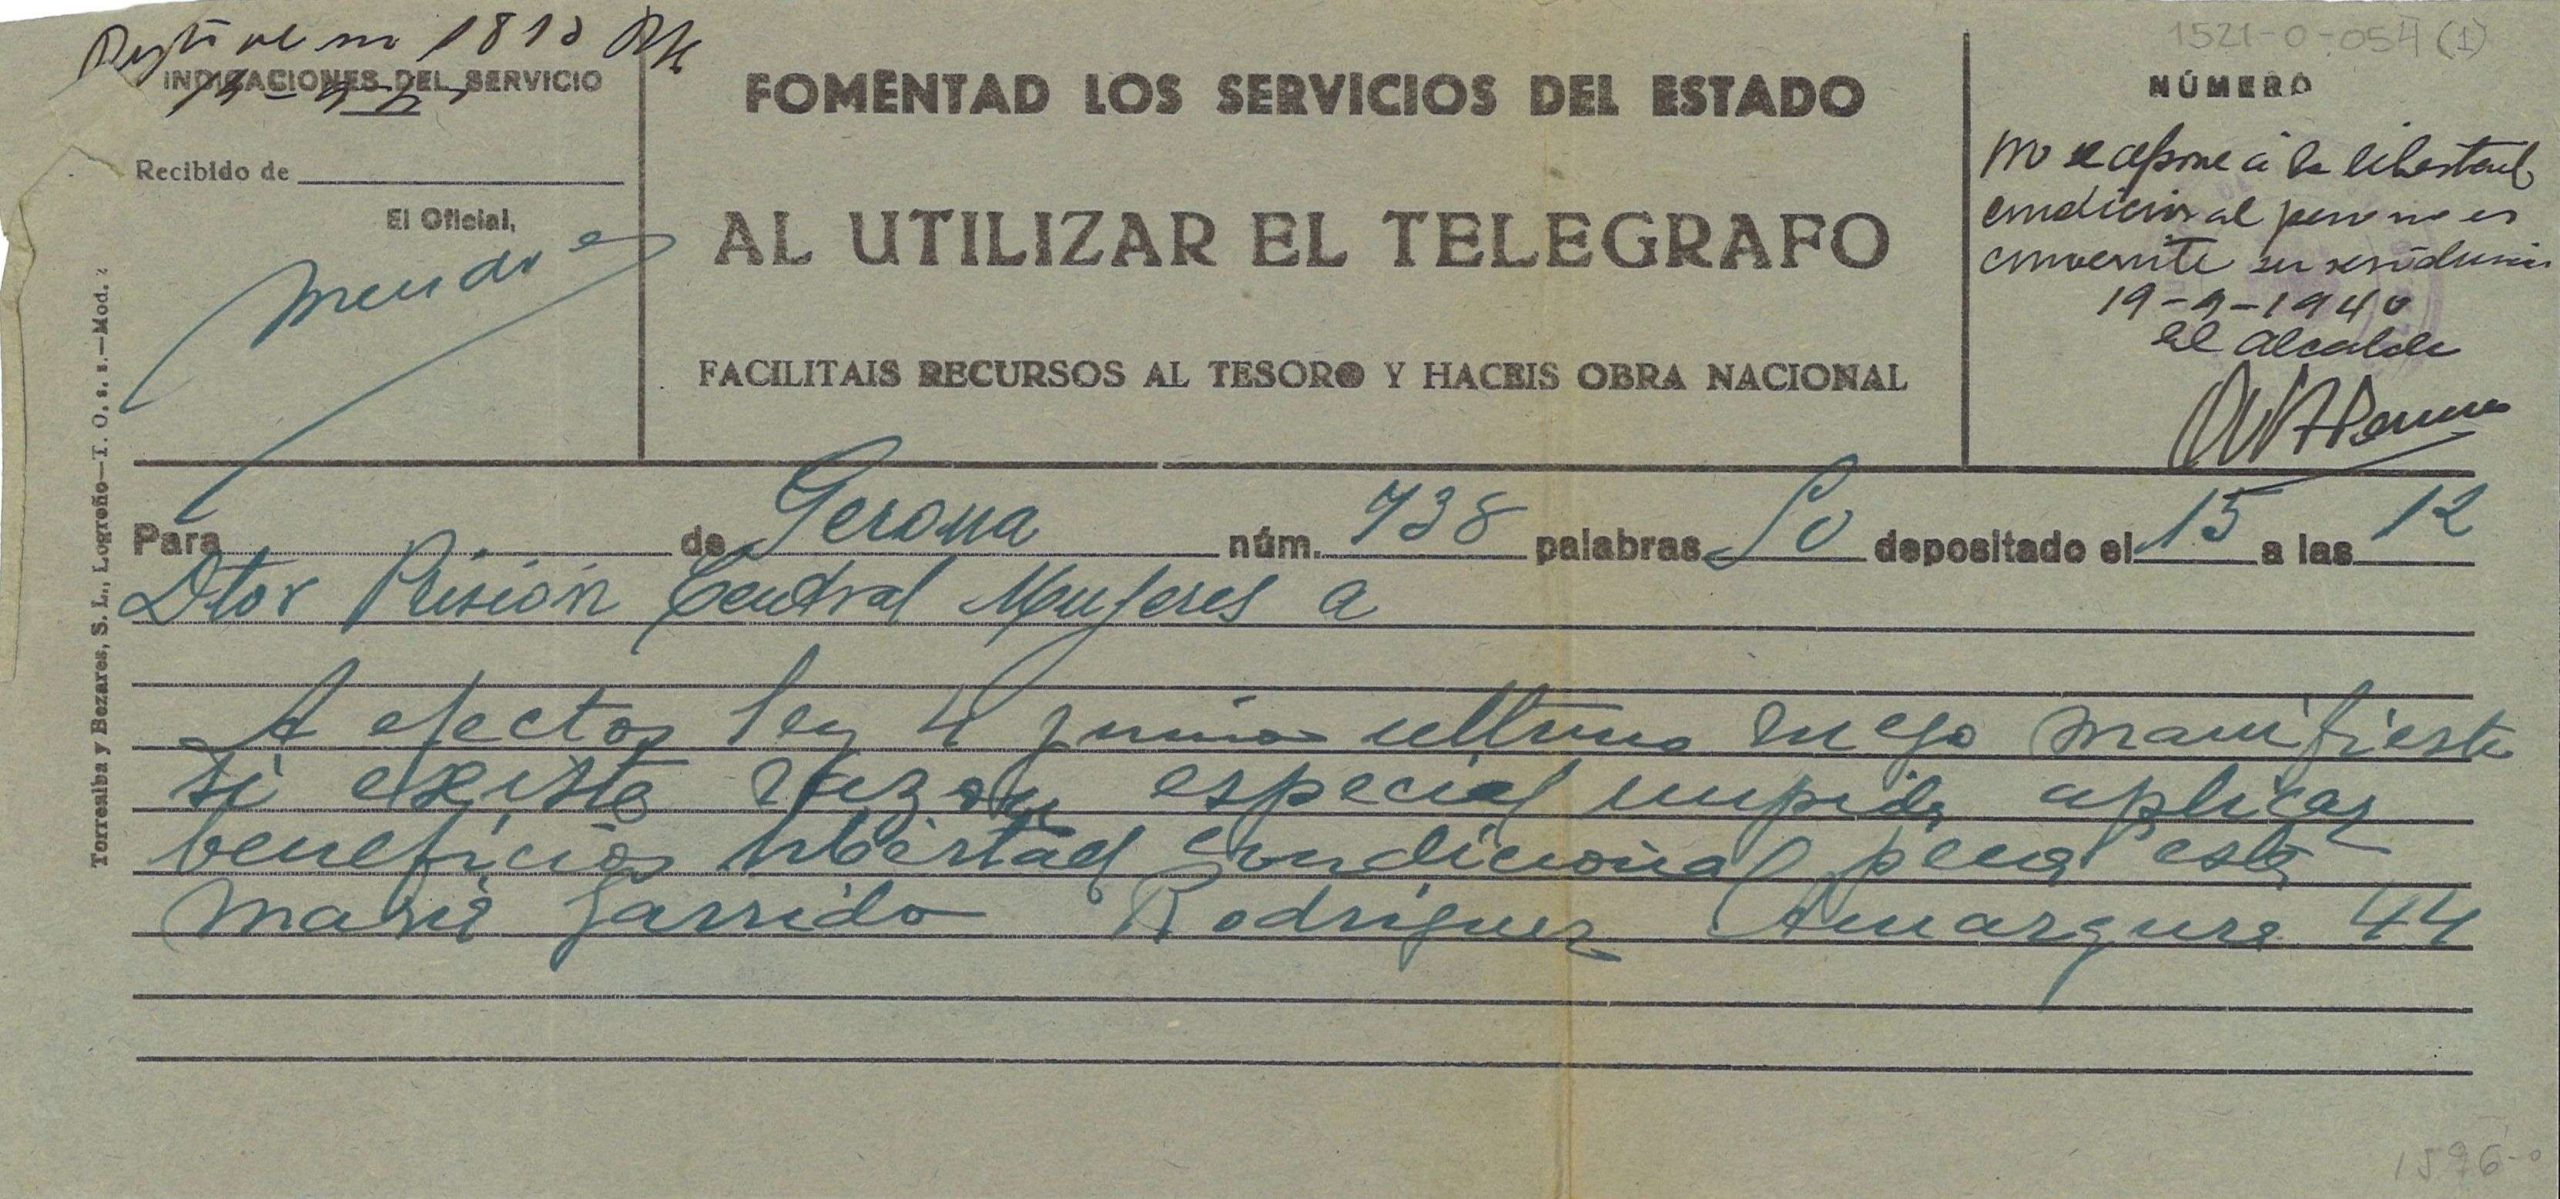 1813
INDICACIONES DEL SERVICIO
Recibido de
El Oficial,
FOMENTAD LOS SERVICIOS DEL ESTADO
AL UTILIZAR EL TELEGRAFO
FACILITAIS RECURSOS AL TESORO Y HACEIS OBRA NACIONAL
1521-0-054 (1)
NÚMERO
no se opone a la libertad
condicional pero no es
conveniente su residencia
19-9-1940
El Alcalde
Torrealba y Bezares, S. L., Logroño—T. O. s. s.—Mod. 2
Para de Gerona núm. 738 palabras 50 depositado el 15 a las 12
Dtor Prisión Central Mujeres a
A efectos ley 4 junio ultimo ruego manifieste
si existe razon especial impida aplicar
beneficios libertad condicional pena esta
Maria Garrido Rodriguez Amargura 44